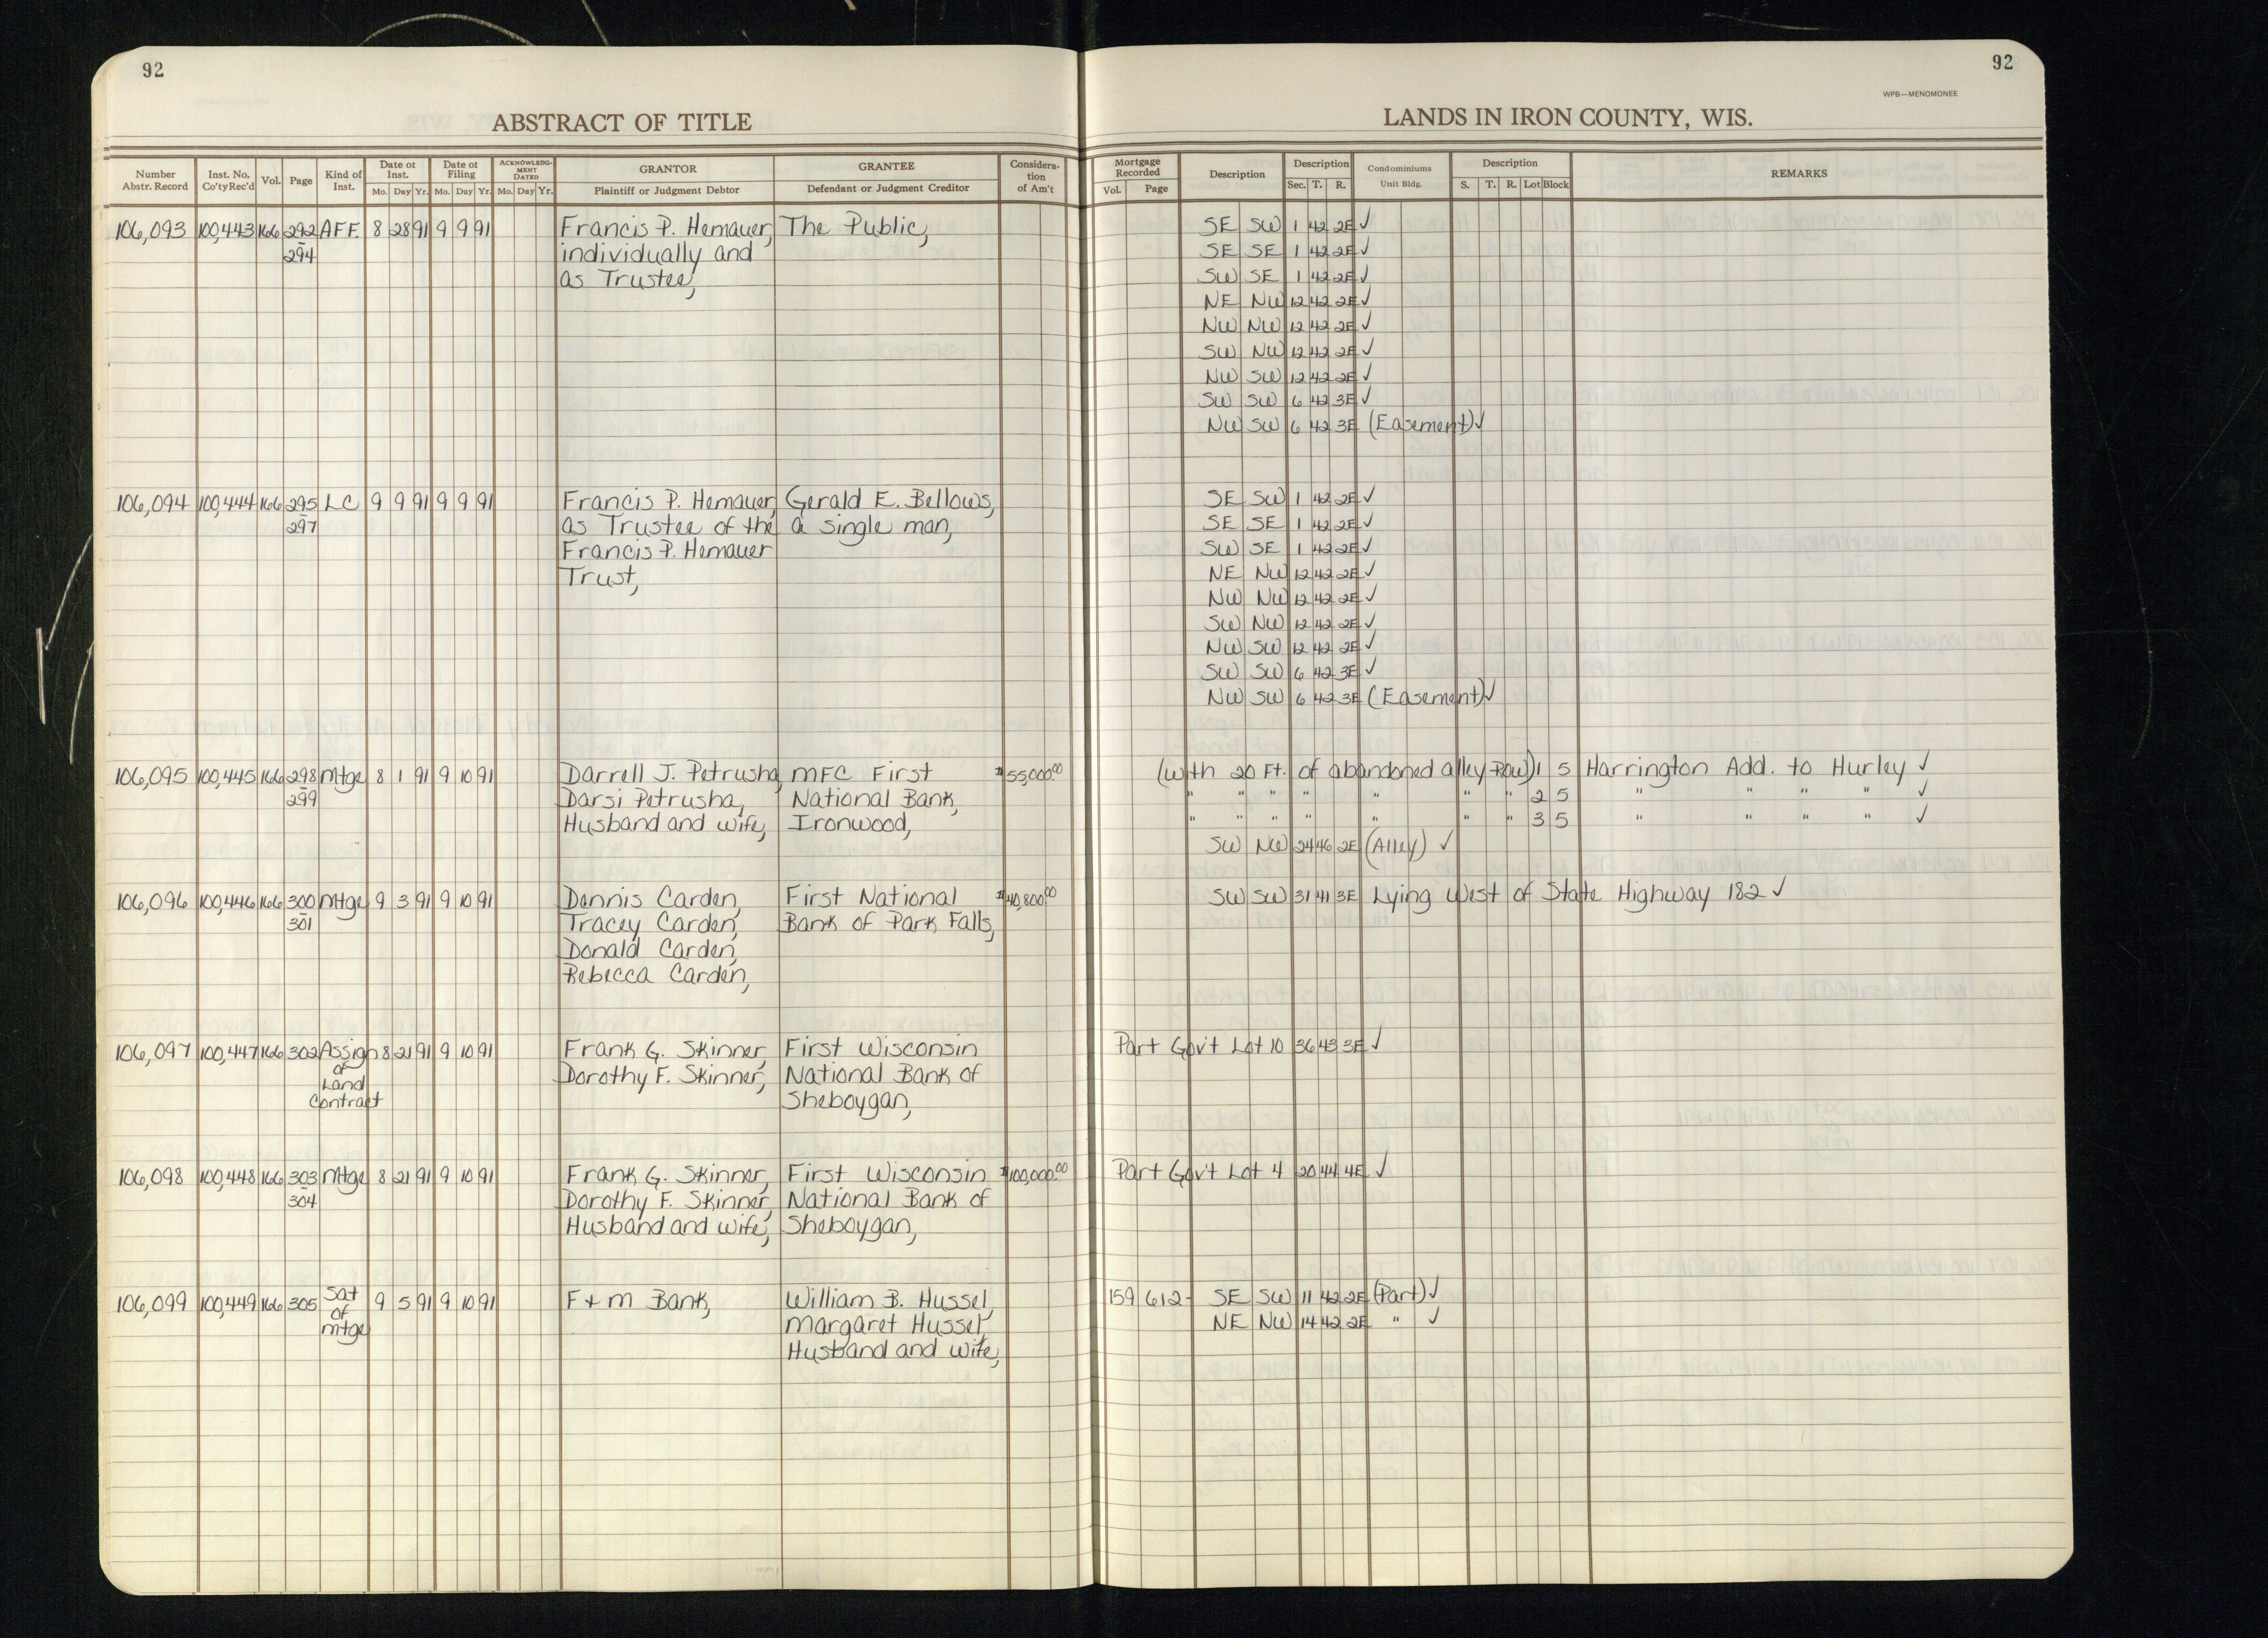 92
92
WPB—MENOMONEE
ABSTRACT OF TITLE
LANDS IN IRON COUNTY, WIS.
Number Abstr. Record
Inst. No. Co'ty Rec'd
Vol.
Page
Kind of Inst.
Date of Inst.
Mo. Day Yr.
Date of Filing
Mo. Day Yr.
ACKNOWLEDGMENT DATED
Mo. Day Yr.
GRANTOR
Plaintiff or Judgment Debtor
GRANTEE
Defendant or Judgment Creditor
Consideration of Am't
Mortgage Recorded
Vol. Page
Description
Description
Sec. T. R.
Condominiums
Unit Bldg.
Description
S. T. R. Lot Block
REMARKS
106,093 100,443 166 292 AFF. 8 28 91 9 9 91 Francis P. Hemauer, The Public, SE SW 1 42 2E ✓
- 294 individually and SE SE 1 42 2E ✓
as Trustee, SW SE 1 42 2E ✓
NE NW 12 42 2E ✓
NW NW 12 42 2E ✓
SW NW 12 42 2E ✓
NW SW 12 42 2E ✓
SW SW 6 42 3E ✓
NW SW 6 42 3E (Easement) ✓
106,094 100,444 166 295 LC 9 9 91 9 9 91 Francis P. Hemauer, Gerald E. Bellows, SE SW 1 42 2E ✓
- 297 as Trustee of the a single man, SE SE 1 42 2E ✓
Francis P. Hemauer SW SE 1 42 2E ✓
Trust, NE NW 12 42 2E ✓
NW NW 12 42 2E ✓
SW NW 12 42 2E ✓
NW SW 12 42 2E ✓
SW SW 6 42 3E ✓
NW SW 6 42 3E (Easement) ✓
106,095 100,445 166 298 Mtge 8 1 91 9 10 91 Darrell J. Petrusha, MFC First $55,000.00 (with 20 Ft. of abandoned alley Row) 1 5 Harrington Add. to Hurley ✓
- 299 Darsi Petrusha, National Bank, " " " " " " " 2 5 " " " " ✓
Husband and wife, Ironwood, " " " " " " " 3 5 " " " " ✓
SW NW 24 46 2E (Alley) ✓
106,096 100,446 166 300 Mtge 9 3 91 9 10 91 Dennis Carden, First National $40,800.00 SW SW 31 41 3E Lying West of State Highway 182 ✓
- 301 Tracey Carden, Bank of Park Falls,
Donald Carden,
Rebecca Carden,
106,097 100,447 166 302 Assign 8 21 91 9 10 91 Frank G. Skinner, First Wisconsin Part Gov't Lot 10 36 43 3E ✓
of Land Dorothy F. Skinner, National Bank of
Contract Sheboygan,
106,098 100,448 166 303 Mtge 8 21 91 9 10 91 Frank G. Skinner, First Wisconsin $100,000.00 Part Gov't Lot 4 20 44 4E ✓
- 304 Dorothy F. Skinner, National Bank of
Husband and wife, Sheboygan,
106,099 100,449 166 305 Sat 9 5 91 9 10 91 F & M Bank, William B. Hussel, 159 612- SE SW 11 42 2E (Part) ✓
of Mtge Margaret Hussel, NE NW 14 42 2E " ✓
Husband and wife,